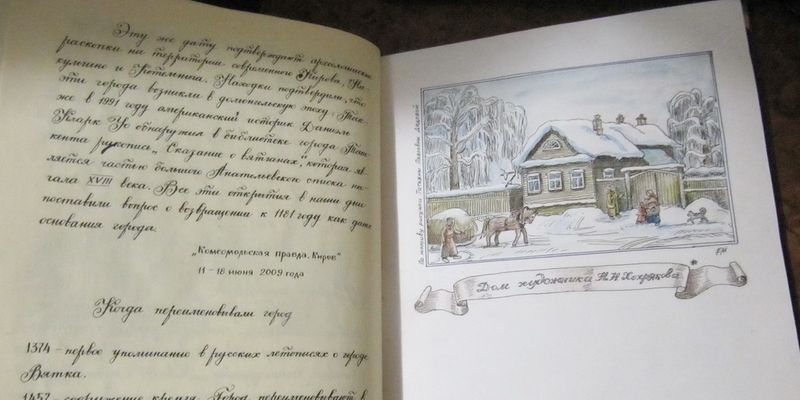 Эту же дату подтверждают археологические
раскопки на территории современного Кирова, Ни-
кулчино и Котельнича. Находки подтвердили, что
эти города возникли в домонгольскую эпоху. Так-
же в 1991 году американский историк Даниэль
Кларк Уо обнаружил в библиотеке города Таш-
кента рукопись „Сказание о вятчанах", которая яв-
ляется частью большого Анатольевского списка на-
чала XVIII века. Все эти открытия в наши дни
поставили вопрос о возвращении к 1181 году как дате
основания города.
„Комсомольская правда. Киров"
11 – 18 июня 2009 года
Когда переименовывали город
1374 – первое упоминание в русских летописях о городе
Вятка.
1457 – сооружение кремля. Город переименовывают в
Дом художника Н.Н Хохрякова